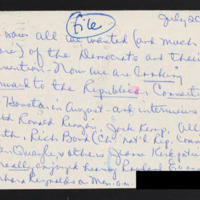 file
July 20
saw all we wanted (and much
more) of the Democrats and their
convention - Now we are looking
forward to the Republican Convention
Houston in August - and interviews
Ronald Reagan, Jack Kemp,
Rich Bond (Ch. Nat'l Rep. Comm
Quayle & others Jeane Kirkpatrick
really enjoyed hearing
Reynolds on